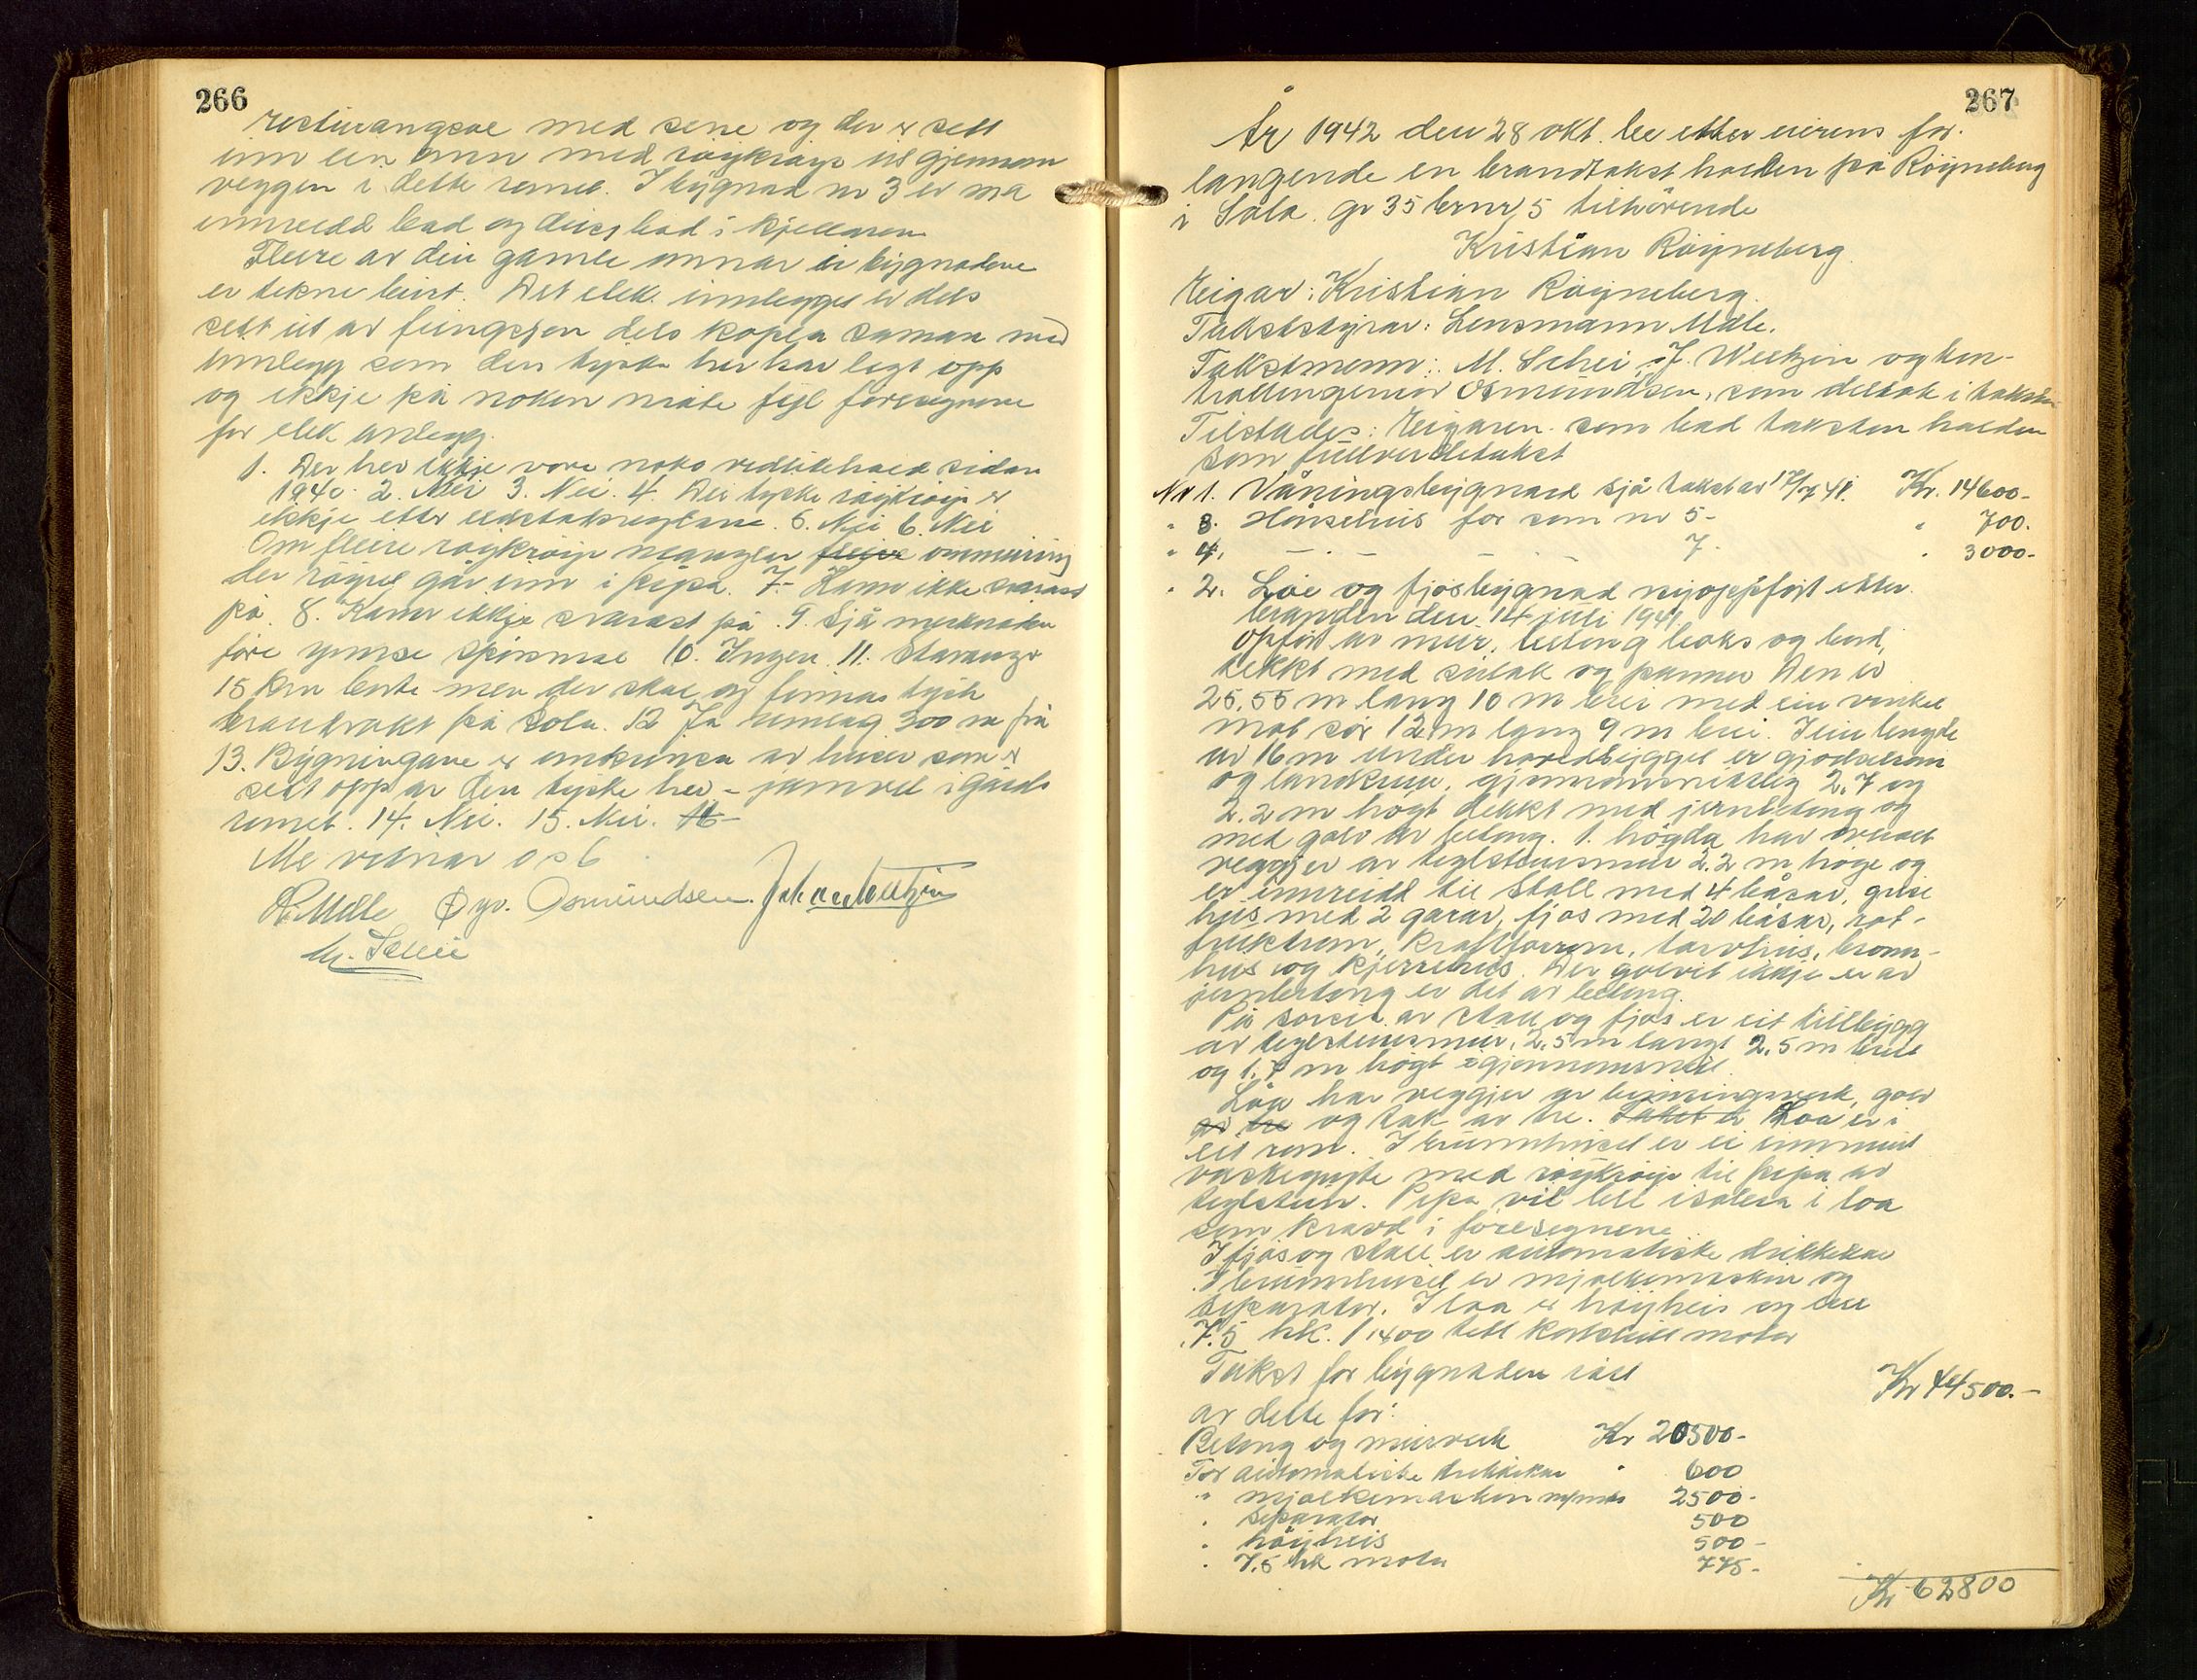 266
med seine og der er sett
inn ein omn med røykrøyr ut gjennom
veggen i dette romet. I bygnad nr 3 er no
innreidd bad og bad i kjellaren
Fleire av dei gamle omnar i bygnadene
er tekne burt. Det elek. innlegget er dels
sett ut av funksjon dels kopla saman med
innlegg som den tyske her har lagt opp
og ikkje på noken måte fyl foresegnene
for elek anlegg.
1. Der her ikkje vore noko vedlikehald sidan
1940. 2. Nei 3. Nei. 4. Dei tyske røykrøyr er
ikkje etter 5. Nei 6. Nei
Om fleire røykrøyr manglar fleire ommuring
der røyret går inn i pipa. 7. Kann ikke svarast
på. 8. Kann ikkje svarast på. 9. Sjå merknaden
føre ymse spörsmål 10. Ingen. 11. Stavanger
15 km borte men der skal og finnas tysk
brandvakt på Sola. 12 Ja umlag 300 m frå
13. Bygningane er omkrinsa av huser som er
sett opp av den tyske her - jamvel i gards
romet. 14. Nei. 15. Nei. 16-
Me vitnar os b
Mæle Øyv. Osmundsen. Johan Weltzin
M. Schei
267
År 1942 den 28 okt. ble etter eierens for-
langende en branntakst holden på Röyneberg
i Sola. gr 35 brnr, 5 tilhörende
Kristian Röyneberg.
Eigar: Kristian Röyneberg.
Takststyrar: Lensmann Mæle.
Takstmenn: M. Schei, J. Weltzin og kon-
trollingeniør Osmundsen, som deltok i taksten
Tilstades: Eigaren som bad taksten halden
som fullverditakst
Nr 1. Våningsbygnad sjå takst av 17/7 41. Kr. 14600-
" 3. Hönsehus för som nr 5- " 700.
" 4. - . - - . - 7. " 3000-
" 2. Löe og fjösbygnad nyoppført etter
branden den 14 juli 1941.
Oppført av mur, betong boks og bord,
tekkt med sutak og pannor Den er
25,55 m lang 10 m brei med ein vinkel
mot sör 12 m lang 9 m brei. I ein lengde
av 16 m under hovedbygget er gjödselrom
og landkum, gjennomsnittleg 2,7 og
2.2 m högt dekkt med jernbetong og
med golv av betong. 1. högda har
veggjer av teglsteinsmur 2.2 m höge og
er innreidd til stall med 4 båsar, grise
hus med 2 garar, fjös med 20 båsar, rot-
fruktrom, kraftforrom, torvhus, brönn-
hus og kjerrehus. Der golvet ikkje er av
jernbetong er det av betong.
På sørsia av stall og fjös er eit tilbygg
av teglsteinsmur, 2,5 m langt 2.5 m breit
og 1.7 m högt i gjennomsnitt.
Löa har veggjer av binningsverk, golv
av tre og tak av tre. Taket er Loa er i
eit rom. I brunnhuset er ei innmurt
vaskegryte med röykröyr til pipa av
teglstein. Pipa vil bli isolera i loa
som kravd i foresegnene
I fjös og stall er automatiske drikkekar
I brunnhuset er mjølkemaskin og
separator. I loa er höyheis og ein
7.5 hk. 1400 motor
Takst for bygnaden i alt Kr 44500.-
av dette for:
Betong og murverk Kr 20500-
For automatiske drikkekar " 600
" mjølkemaskin 2500-
" separator 500
" höyheis 500-
" 7.5 hk motor 775-
Kr 62800